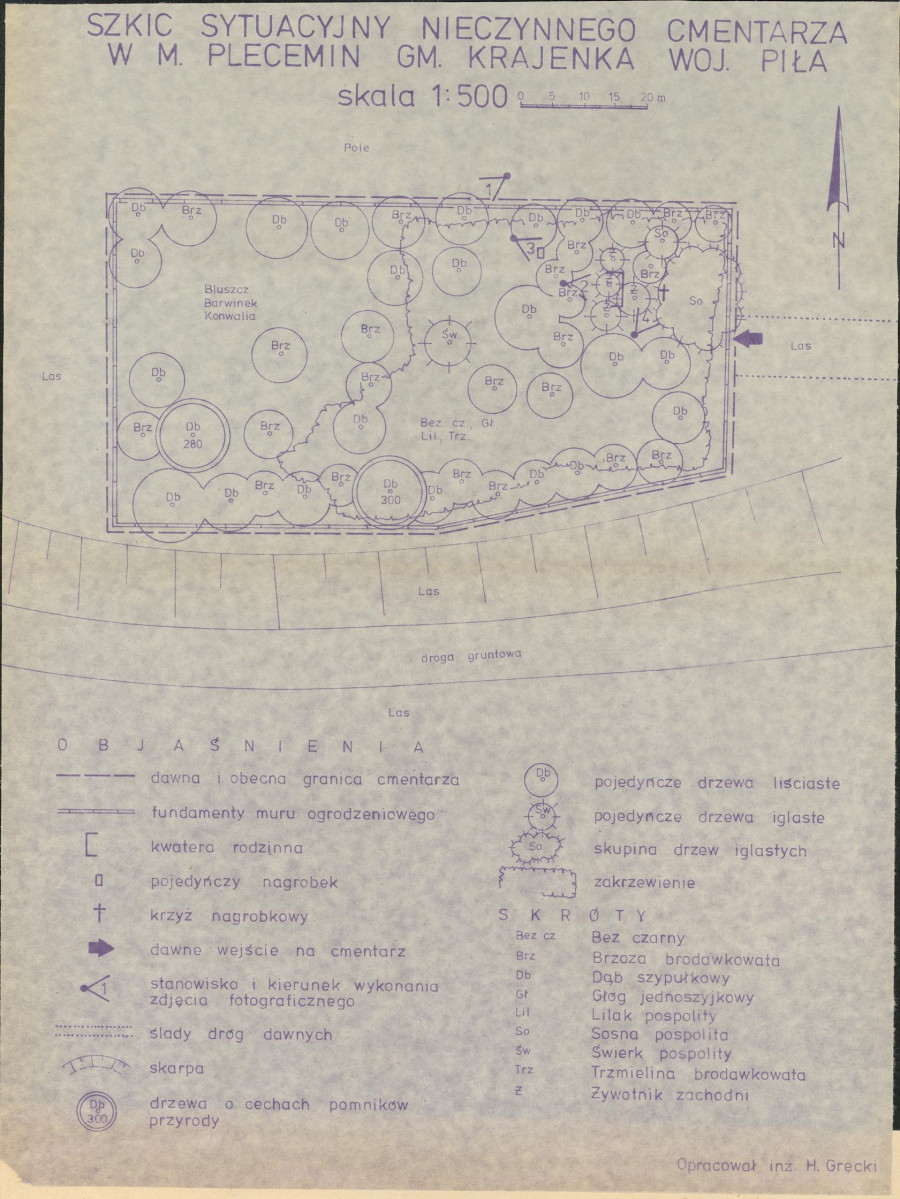 SZKIC SYTUACYJNY NIECZYNNEGO CMENTARZA
W M. PLECEMIN GM. KRAJENKA WOJ. PIŁA
skala 1:500 0 5 10 15 20 m
Pole
1
Db Brz Db Db Brz Db Db Db Db Brz Brz
N
3
So
Brz
Db
Db Db
Brz Brz
2
Brz Ż
Bluszcz
Barwinek
Konwalia
Ż
So
Db
4
Brz Św Brz
Las
Brz Db Db
Las
Db Brz Brz Brz
Db
Brz
Db
280
Brz
Db
Bez cz., Gł.,
Lil., Trz.
Db Db Brz Db Brz
Db
300
Db Brz Brz Db Db Brz Brz
Las
droga gruntowa
Las
OBJAŚNIENIA
dawna i obecna granica cmentarza
fundamenty muru ogrodzeniowego
kwatera rodzinna
pojedyńczy nagrobek
krzyż nagrobkowy
dawne wejście na cmentarz
1
stanowisko i kierunek wykonania
zdjęcia fotograficznego
ślady dróg dawnych
skarpa
Db
300
drzewa o cechach pomników
przyrody
Db
pojedyńcze drzewa liściaste
Św
pojedyńcze drzewa iglaste
So
skupina drzew iglastych
zakrzewienie
SKRÓTY
Bez cz Bez czarny
Brz Brzoza brodawkowata
Db Dąb szypułkowy
Gł Głóg jednoszyjkowy
Lil Lilak pospolity
So Sosna pospolita
Św Świerk pospolity
Trz Trzmielina brodawkowata
Ż Żywotnik zachodni
Opracował inż. H. Grecki